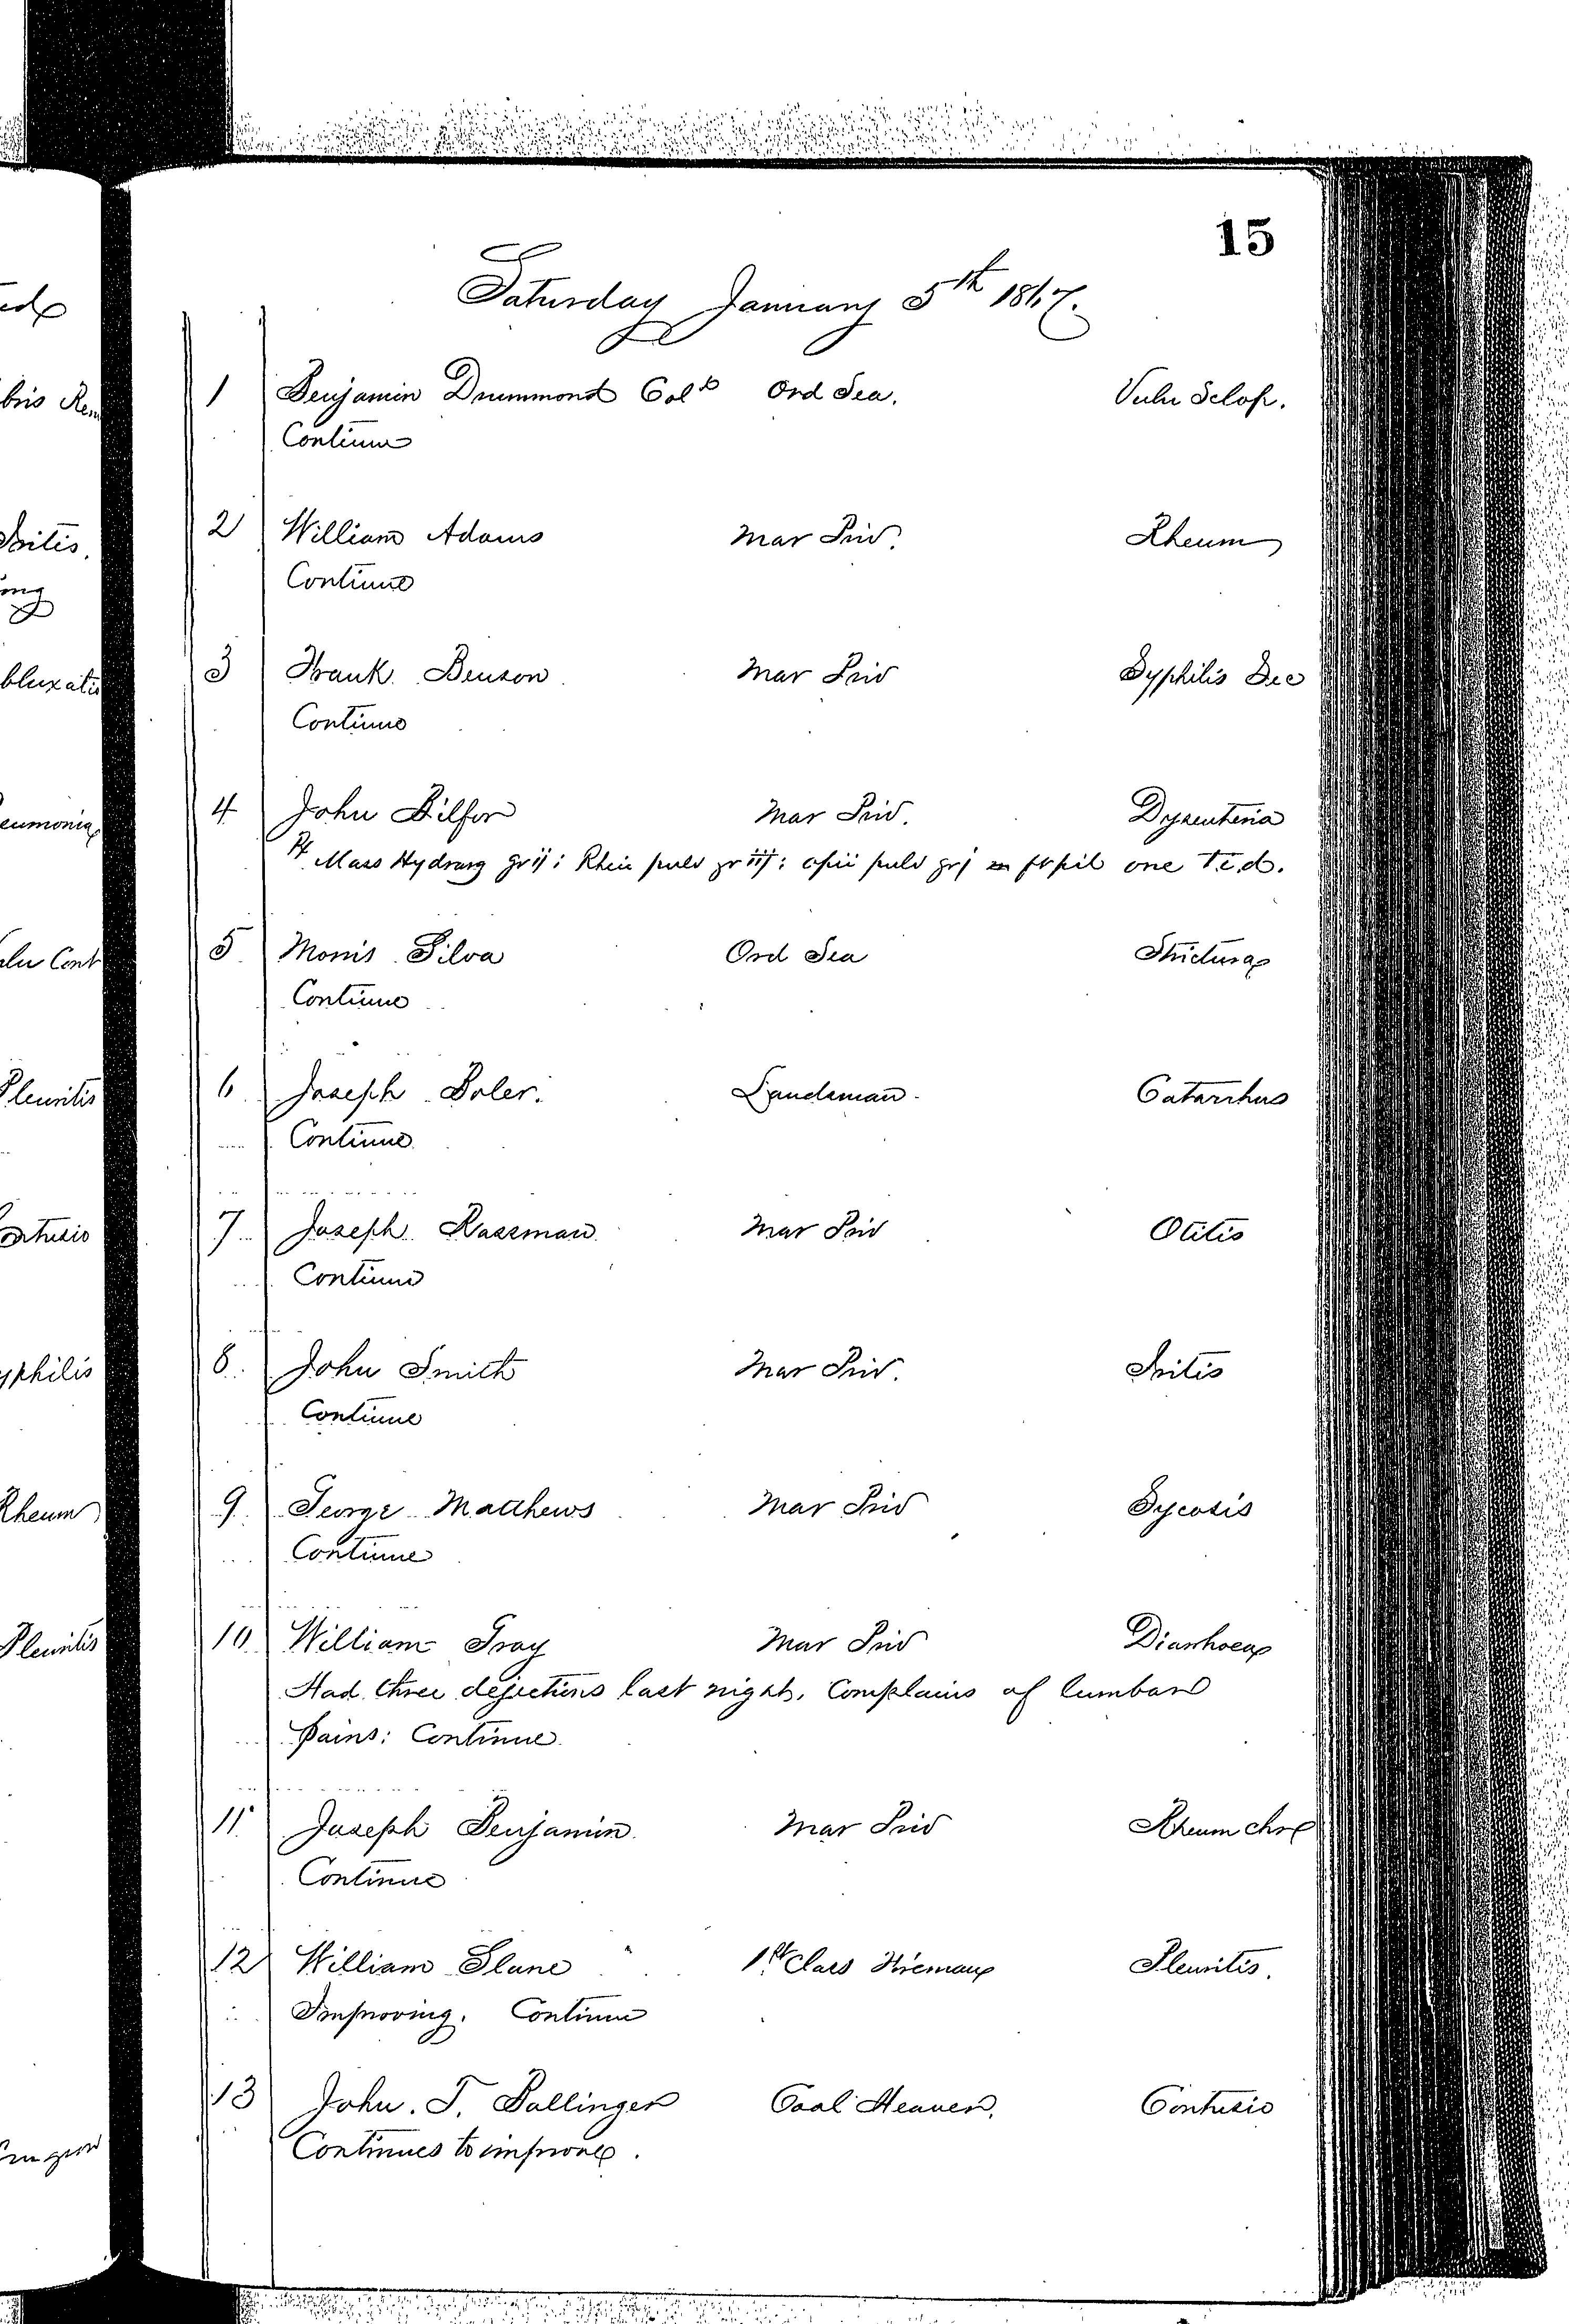 15
Saturday January 5th 1867.
1 Benjamin Drummond Cold Ord Sea. Vuln Sclop.
Continue
2 William Adams Mar Priv. Rheum
Continue
3 Frank Benson Mar Priv Syphilis Sec
Continue
4 John Bilfor Mar Priv. Dysenteria
Rx Mass Hydrarg gr ij: Rheii pulv gr iij: opii pulv gr j ft pil one T.i.d.
5 Morris Silva Ord Sea Strictura
Continue
6 Joseph Boler. Landsman. Catarrhus
Continue
7 Joseph Rassman Mar Priv Otitis
Continue
8 John Smith Mar Priv. Iritis
Continue
9 George Matthews Mar Priv Sycosis
Continue
10 William Gray Mar Priv Diarrhoea
Had three dejections last night, Complains of lumbar
pains: Continue
11 Joseph Benjamin Mar Priv Rheum chr
Continue
12 William Slane 1st Class Fireman Pleuritis.
Improving. Continue
13 John. T. Bollinger Coal Heaver. Contusio
Continues to improve.